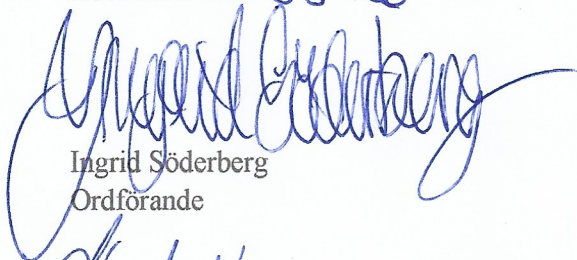 Ingrid Söderberg
Ingrid Söderberg
Ordförande